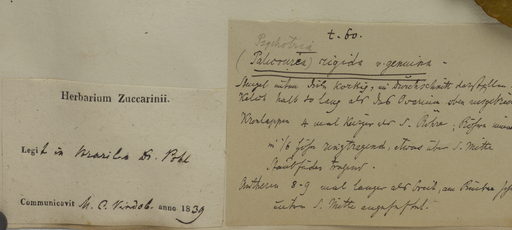 Herbarium Zuccarinii.
Legit in Brasilia Dr. Pohl
Communicavit M. C. Vindob. anno 1839
t. 60.
Psychotria
(Palicourea) rigida v. genuina.
Stengel unten dick korkig, im Durchschnitt
Kelch halb so lang als das Ovarium oben
Kronlappen 4 mal kürzer der S. Röhre,
in 1/6 Höhe ringtragend, etwas über S. Mitte
Staubfäden tragend.
Antheren 8-9 mal länger als breit, am Rücken
unter S. Mitte angeheftet.